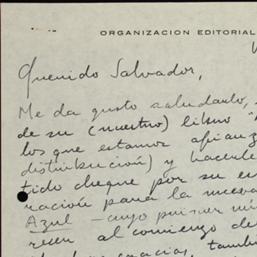 ORGANIZACION EDITORIAL
Querido Salvador,
Me da gusto saludarlo,
de su (nuestro) libro
los que estamos afianz
distribución) y hacerle
tido cheque por su
ración para la nueva
Azul – cuyo primer
al comienzo de
gracias, tambi